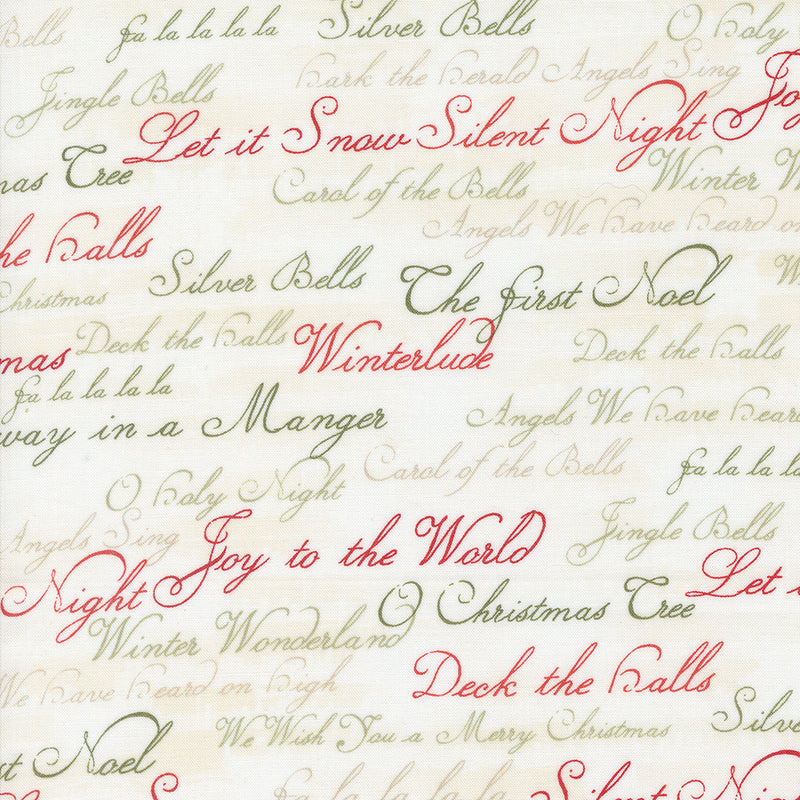 Bells fa la la la la Silver Bells O holy
Jingle Bells hark the herald Angels Sing Joy
Let it Snow Silent Night
mas Tree Carol of the Bells Winter W
he halls Angels We have heard on
Silver Bells The first Noel W
Christmas
mas Deck the halls Winterlude Deck the halls
fa la la la la
way in a Manger Angels We have heard
Carol of the Bells fa la la la
O holy Night Jingle Bells
Angels Sing Joy to the World
Night O Christmas Tree Let i
Winter Wonderland
We have heard on high Deck the halls
We Wish You a Merry Christmas Silve
st Noel
S fa la la la la Silent Nig